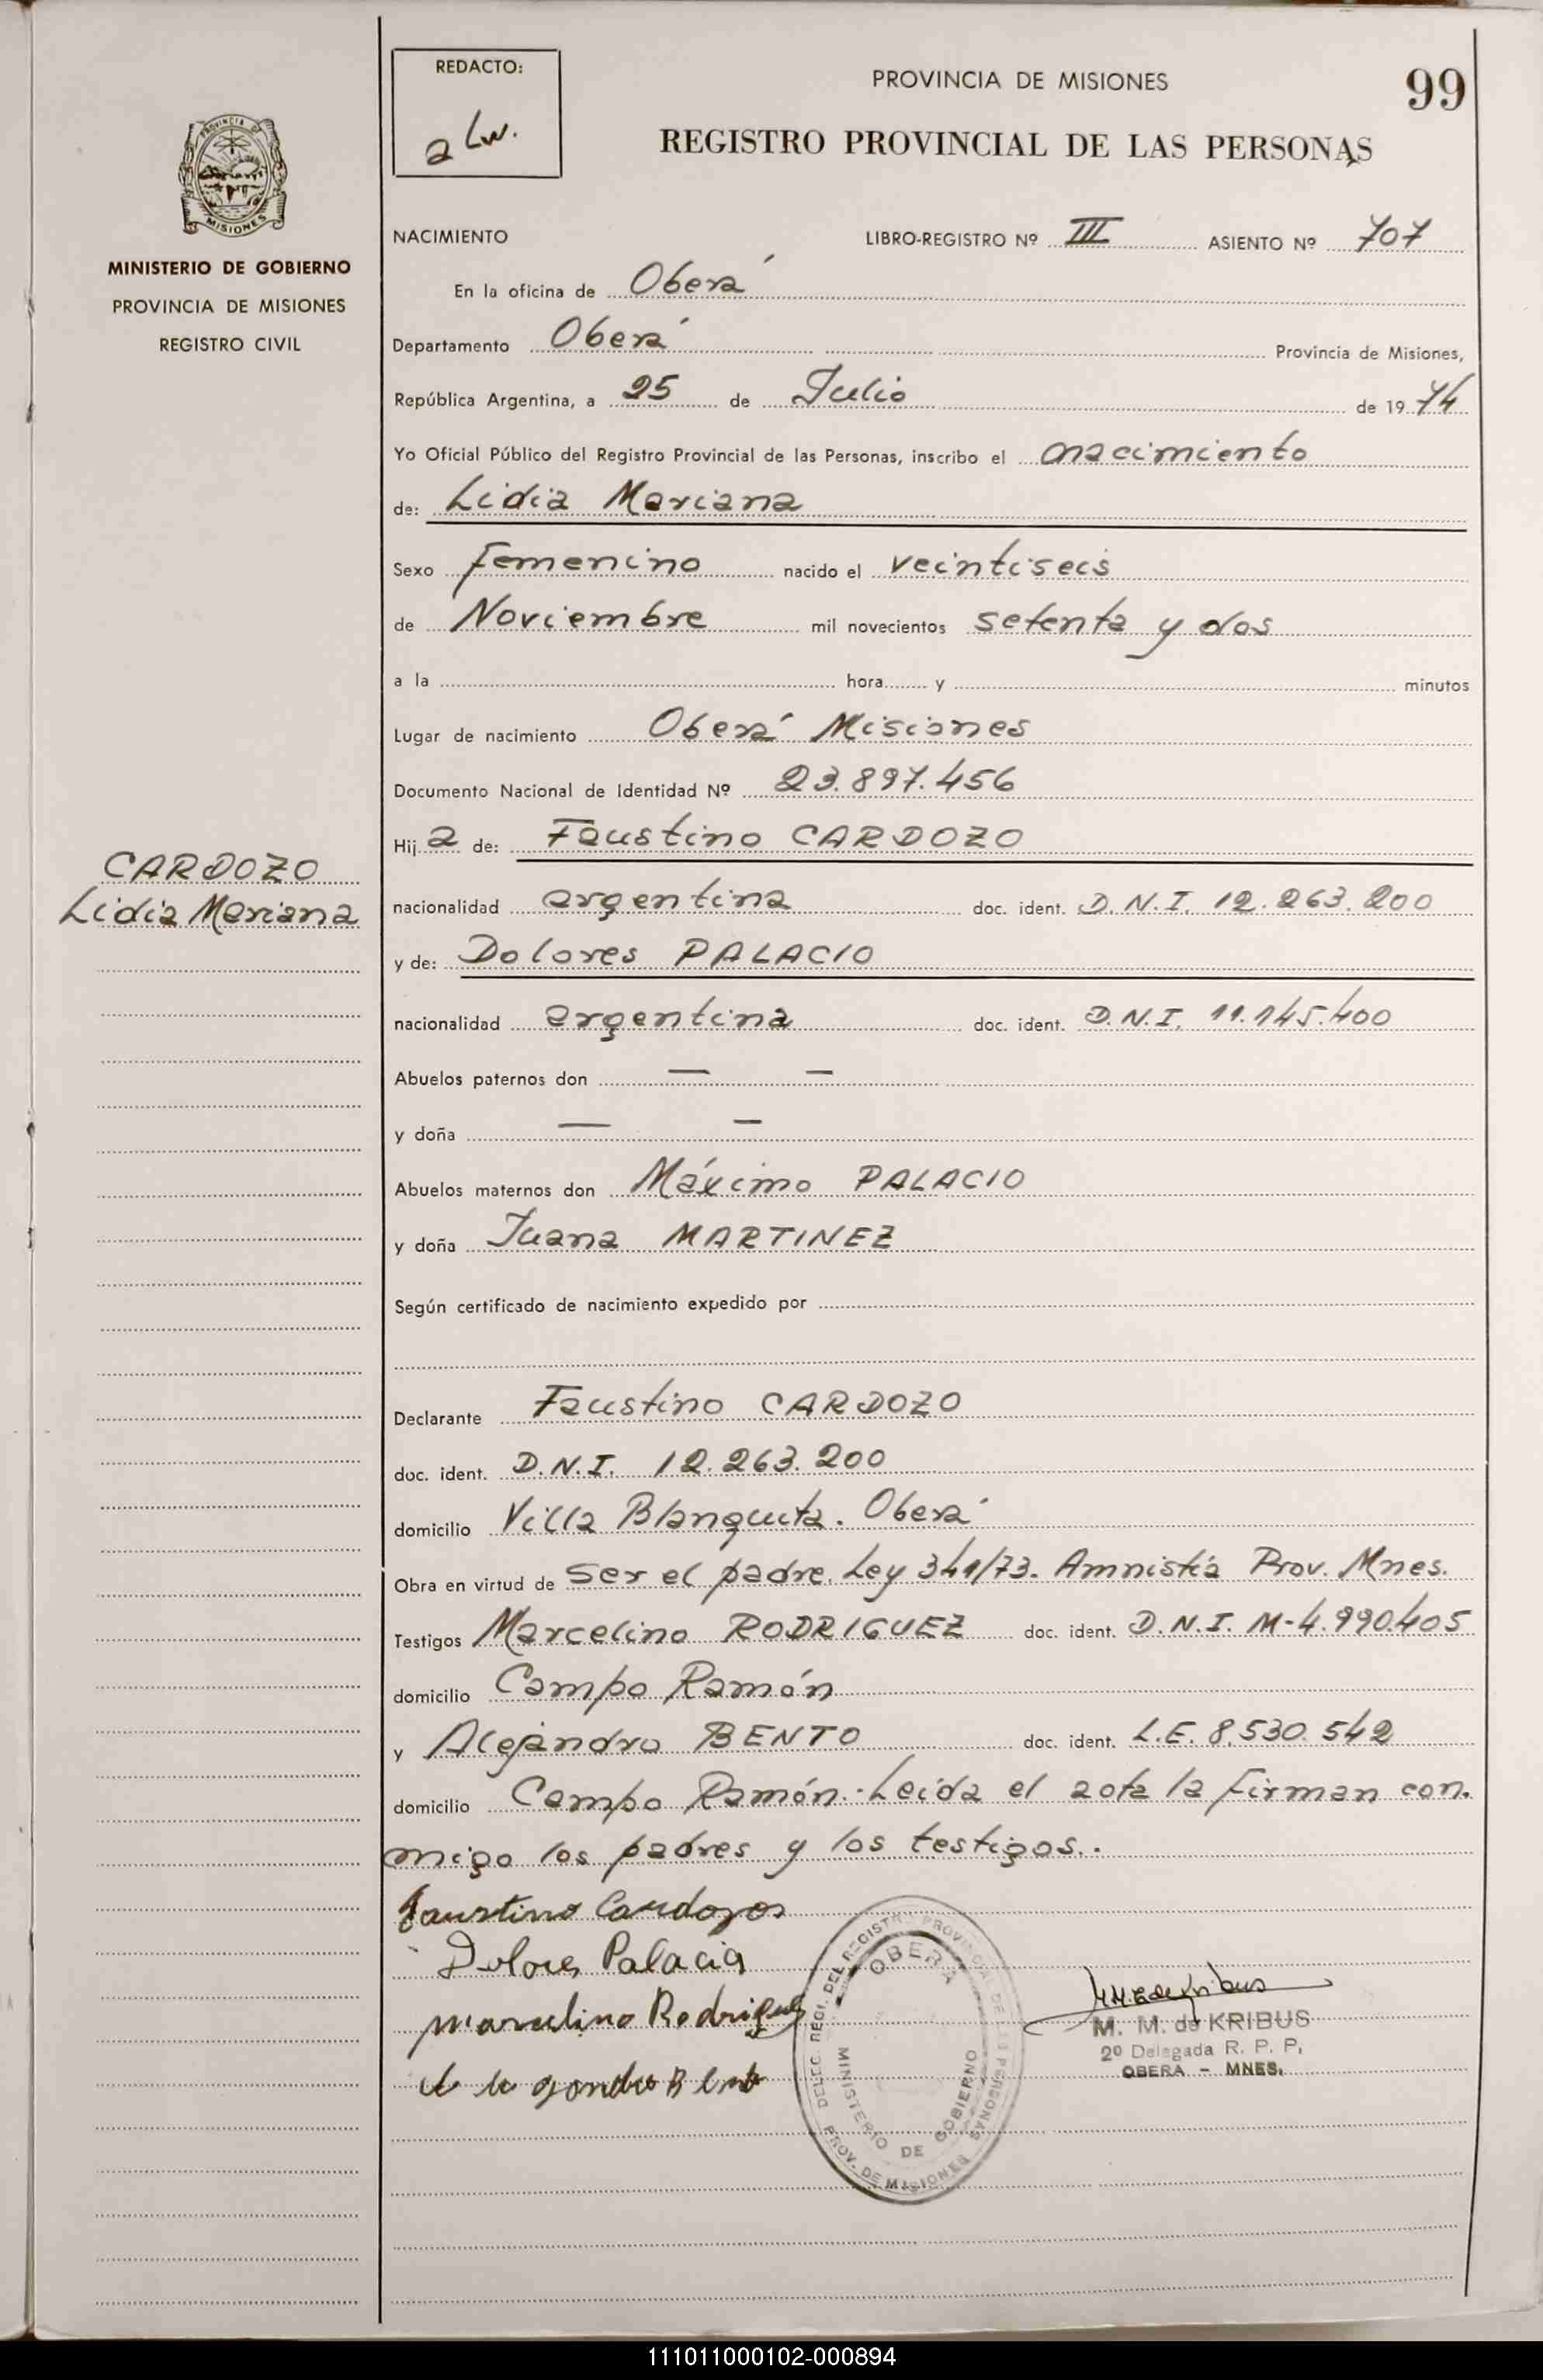 REDACTO:
a Lw.
PROVINCIA DE MISIONES
99
REGISTRO PROVINCIAL DE LAS PERSONAS
PROVINCIA DE
MISIONES
MINISTERIO DE GOBIERNO
PROVINCIA DE MISIONES
REGISTRO CIVIL
NACIMIENTO LIBRO-REGISTRO Nº III ASIENTO Nº 707
En la oficina de Oberá
Departamento Oberá Provincia de Misiones,
República Argentina, a 25 de Julio de 1974
Yo Oficial Público del Registro Provincial de las Personas, inscribo el nacimiento
de: Lidia Mariana
Sexo femenino nacido el veintiseis
de Noviembre mil novecientos setenta y dos
a la hora y minutos
Lugar de nacimiento Oberá Misiones
Documento Nacional de Identidad Nº 23.897.456
Hija de: Faustino CARDOZO
CARDOZO
Lidia Mariana
nacionalidad argentina doc. ident. D.N.I. 12.263.200
y de: Dolores PALACIO
nacionalidad argentina doc. ident. D.N.I. 11.145.400
Abuelos paternos don — —
y doña — —
Abuelos maternos don Máximo PALACIO
y doña Juana MARTINEZ
Según certificado de nacimiento expedido por
Declarante Faustino CARDOZO
doc. ident. D.N.I. 12.263.200
domicilio Villa Blanquita. Oberá
Obra en virtud de ser el padre. Ley 341/73. Amnistía Prov. Mnes.
Testigos Marcelino RODRIGUEZ doc. ident. D.N.I. M-4.990.405
domicilio Campo Ramón
y Alejandro BENTO doc. ident. L.E. 8.530.542
domicilio Campo Ramón.- Leída el acta la firman con.
migo los padres y los testigos.-
Faustino Cardozos
Dolores Palacia
marcelino Rodriguez
DELEC. REGI. DEL REGISTRO PROVINCIAL DE LAS PERSONAS
OBERA
MINISTERIO DE GOBIERNO
PROV. DE MISIONES
M. M. de KRIBUS
2º Delegada R. P. P.
OBERA - MNES.
111011000102-000894